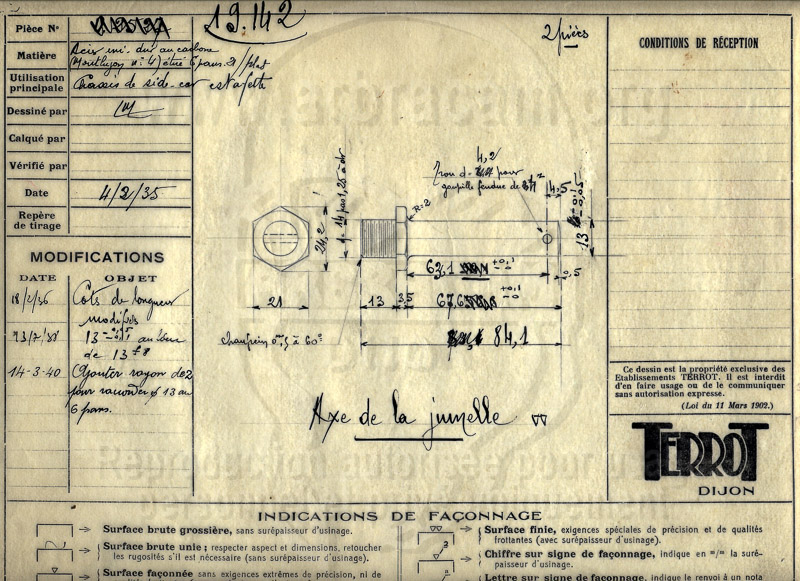 Pièce N°
19.142
2 pièces
Matière
Acier mi-dur au carbone
(Montluçon n° 4) étiré 6 pans 21 s/plat
Utilisation
principale
Chassis de side-car estafette
Dessiné par
Calqué par
Vérifié par
Date
4/2/35
Repère
de tirage
MODIFICATIONS
DATE
OBJET
18/2/36
Cote de longueur
modifiée
13/7/38
13
au lieu
de 13
14-3-40
Ajouter rayon de 2
pour raccorder ϕ 13 au
6 pans.
CONDITIONS DE RÉCEPTION
4,2
Trou d=
pour
goupille fendue de
4,5
R=2
24,2
14 pas 1,25 à dr
13
63,1
+0,1
-0
0,5
21
13
3,5
67,6
+0,1
-0
84,1
chanfrein 0,5 à 60°
Axe de la jumelle
Ce dessin est la propriété exclusive des
Etablissements TERROT. Il est interdit
d'en faire usage ou de le communiquer
sans autorisation expresse.
(Loi du 11 Mars 1902.)
TERROT
DIJON
INDICATIONS DE FAÇONNAGE
Surface brute grossière, sans surépaisseur d'usinage.
Surface brute unie ; respecter aspect et dimensions, retoucher
les rugosités s'il est nécessaire (sans surépaisseur d'usinage).
Surface façonnée sans exigences extrêmes de précision, ni de
Surface finie, exigences spéciales de précision et de qualités
frottantes (avec surépaisseur d'usinage).
3
Chiffre sur signe de façonnage, indique en m/m la suré-
paisseur d'usinage.
Lettre sur signe de façonnage, indique le renvoi à un nota
Reproduction autorisée pour